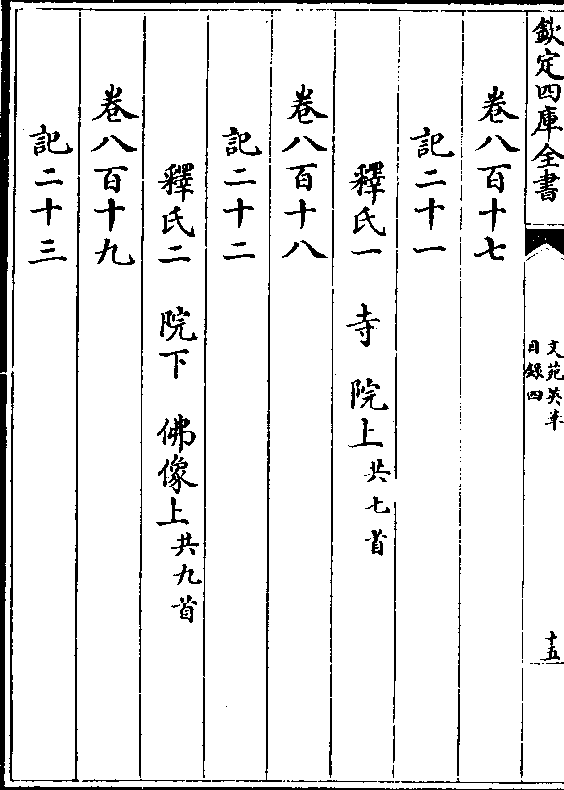 欽定四庫全書
文苑英華
目錄四
十五
卷八百十七
記二十一
釋氏一 寺 院上共七首
卷八百十八
記二十二
釋氏二 院下 佛像上共九首
卷八百十九
記二十三